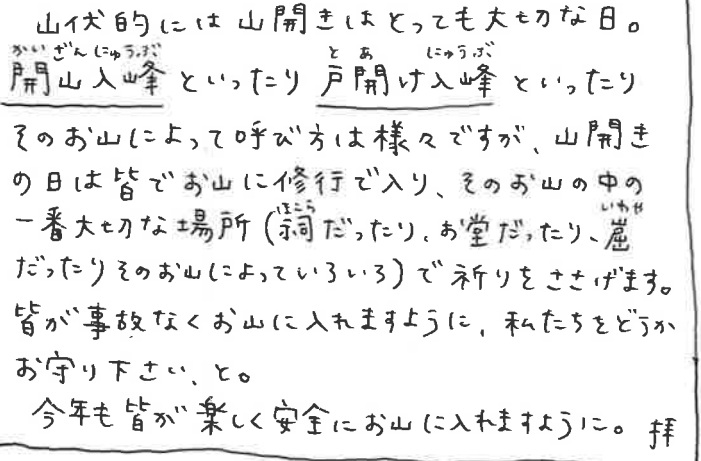 山伏的には山開きはとっても大切な日。
かいざんにゅうぶ とあ にゅうぶ
開山入峰といったり戸開け入峰といったり
そのお山によって呼び方は様々ですが、山開き
の日は皆でお山に修行で入り、そのお山の中の
ほこら いわや
一番大切な場所(祠だったり、お堂だったり、窟
だったりそのお山によっていろいろ)で祈りをささげます。
皆が事故なくお山に入れますように、私たちをどうか
お守り下さい、と。
今年も皆が楽しく安全にお山に入れますように。 拝